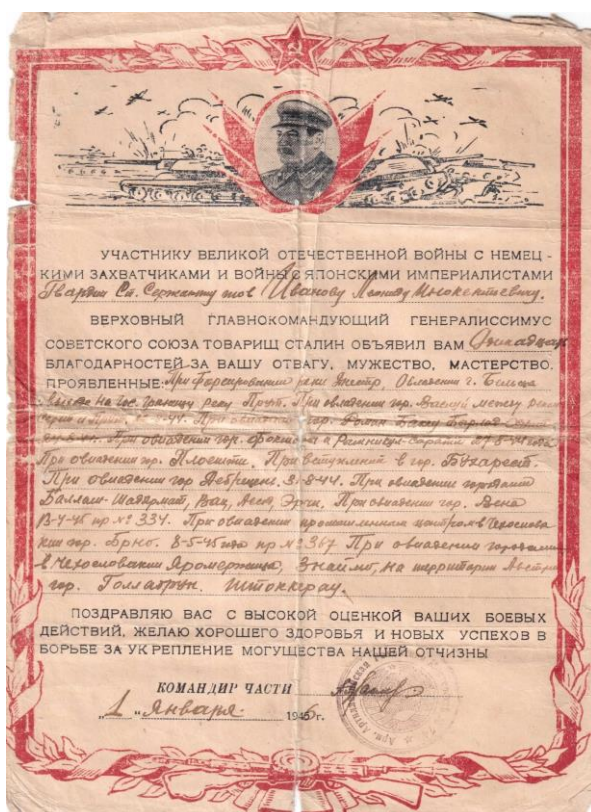 УЧАСТНИКУ ВЕЛИКОЙ ОТЕЧЕСТВЕННОЙ ВОЙНЫ С НЕМЕЦ-
КИМИ ЗАХВАТЧИКАМИ И ВОЙНЫ С ЯПОНСКИМИ ИМПЕРИАЛИСТАМИ
Гвардии Ст. Сержанту тов Иванову Леониду Инокентьевичу.
ВЕРХОВНЫЙ ГЛАВНОКОМАНДУЮЩИЙ ГЕНЕРАЛИССИМУС
СОВЕТСКОГО СОЮЗА ТОВАРИЩ СТАЛИН ОБЪЯВИЛ ВАМ
БЛАГОДАРНОСТЕЙ ЗА ВАШУ ОТВАГУ, МУЖЕСТВО, МАСТЕРСТВО,
ПРОЯВЛЕННЫЕ: При форсировании реки Днестр, Овладении г. Бельцы
на гос. границу реку Прут. При овладении гор. между
При овладении гор. Роман Бакэу Бырлад
При овладении гор. Фокшаны и Рымникул-Сэрат 27-8-44 года
При овладении гор. Плоешти. При вступлении в гор. Бухарест.
При овладении гор Дебрецен. При овладении городами
Вац, При овладении гор. Вена
13-4-45 пр № 334. При овладении промышленным центром в Чехослова
кии гор. Брно. 8-5-45 года пр № 367 При овладении городами
в Чехословакии Яромержице, Знаймо, на территории Австрии
гор. Голлабрун. Штоккерау.
ПОЗДРАВЛЯЮ ВАС С ВЫСОКОЙ ОЦЕНКОЙ ВАШИХ БОЕВЫХ
ДЕЙСТВИЙ. ЖЕЛАЮ ХОРОШЕГО ЗДОРОВЬЯ И НОВЫХ УСПЕХОВ В
БОРЬБЕ ЗА УКРЕПЛЕНИЕ МОГУЩЕСТВА НАШЕЙ ОТЧИЗНЫ
КОМАНДИР ЧАСТИ
„1" Января 1946г.